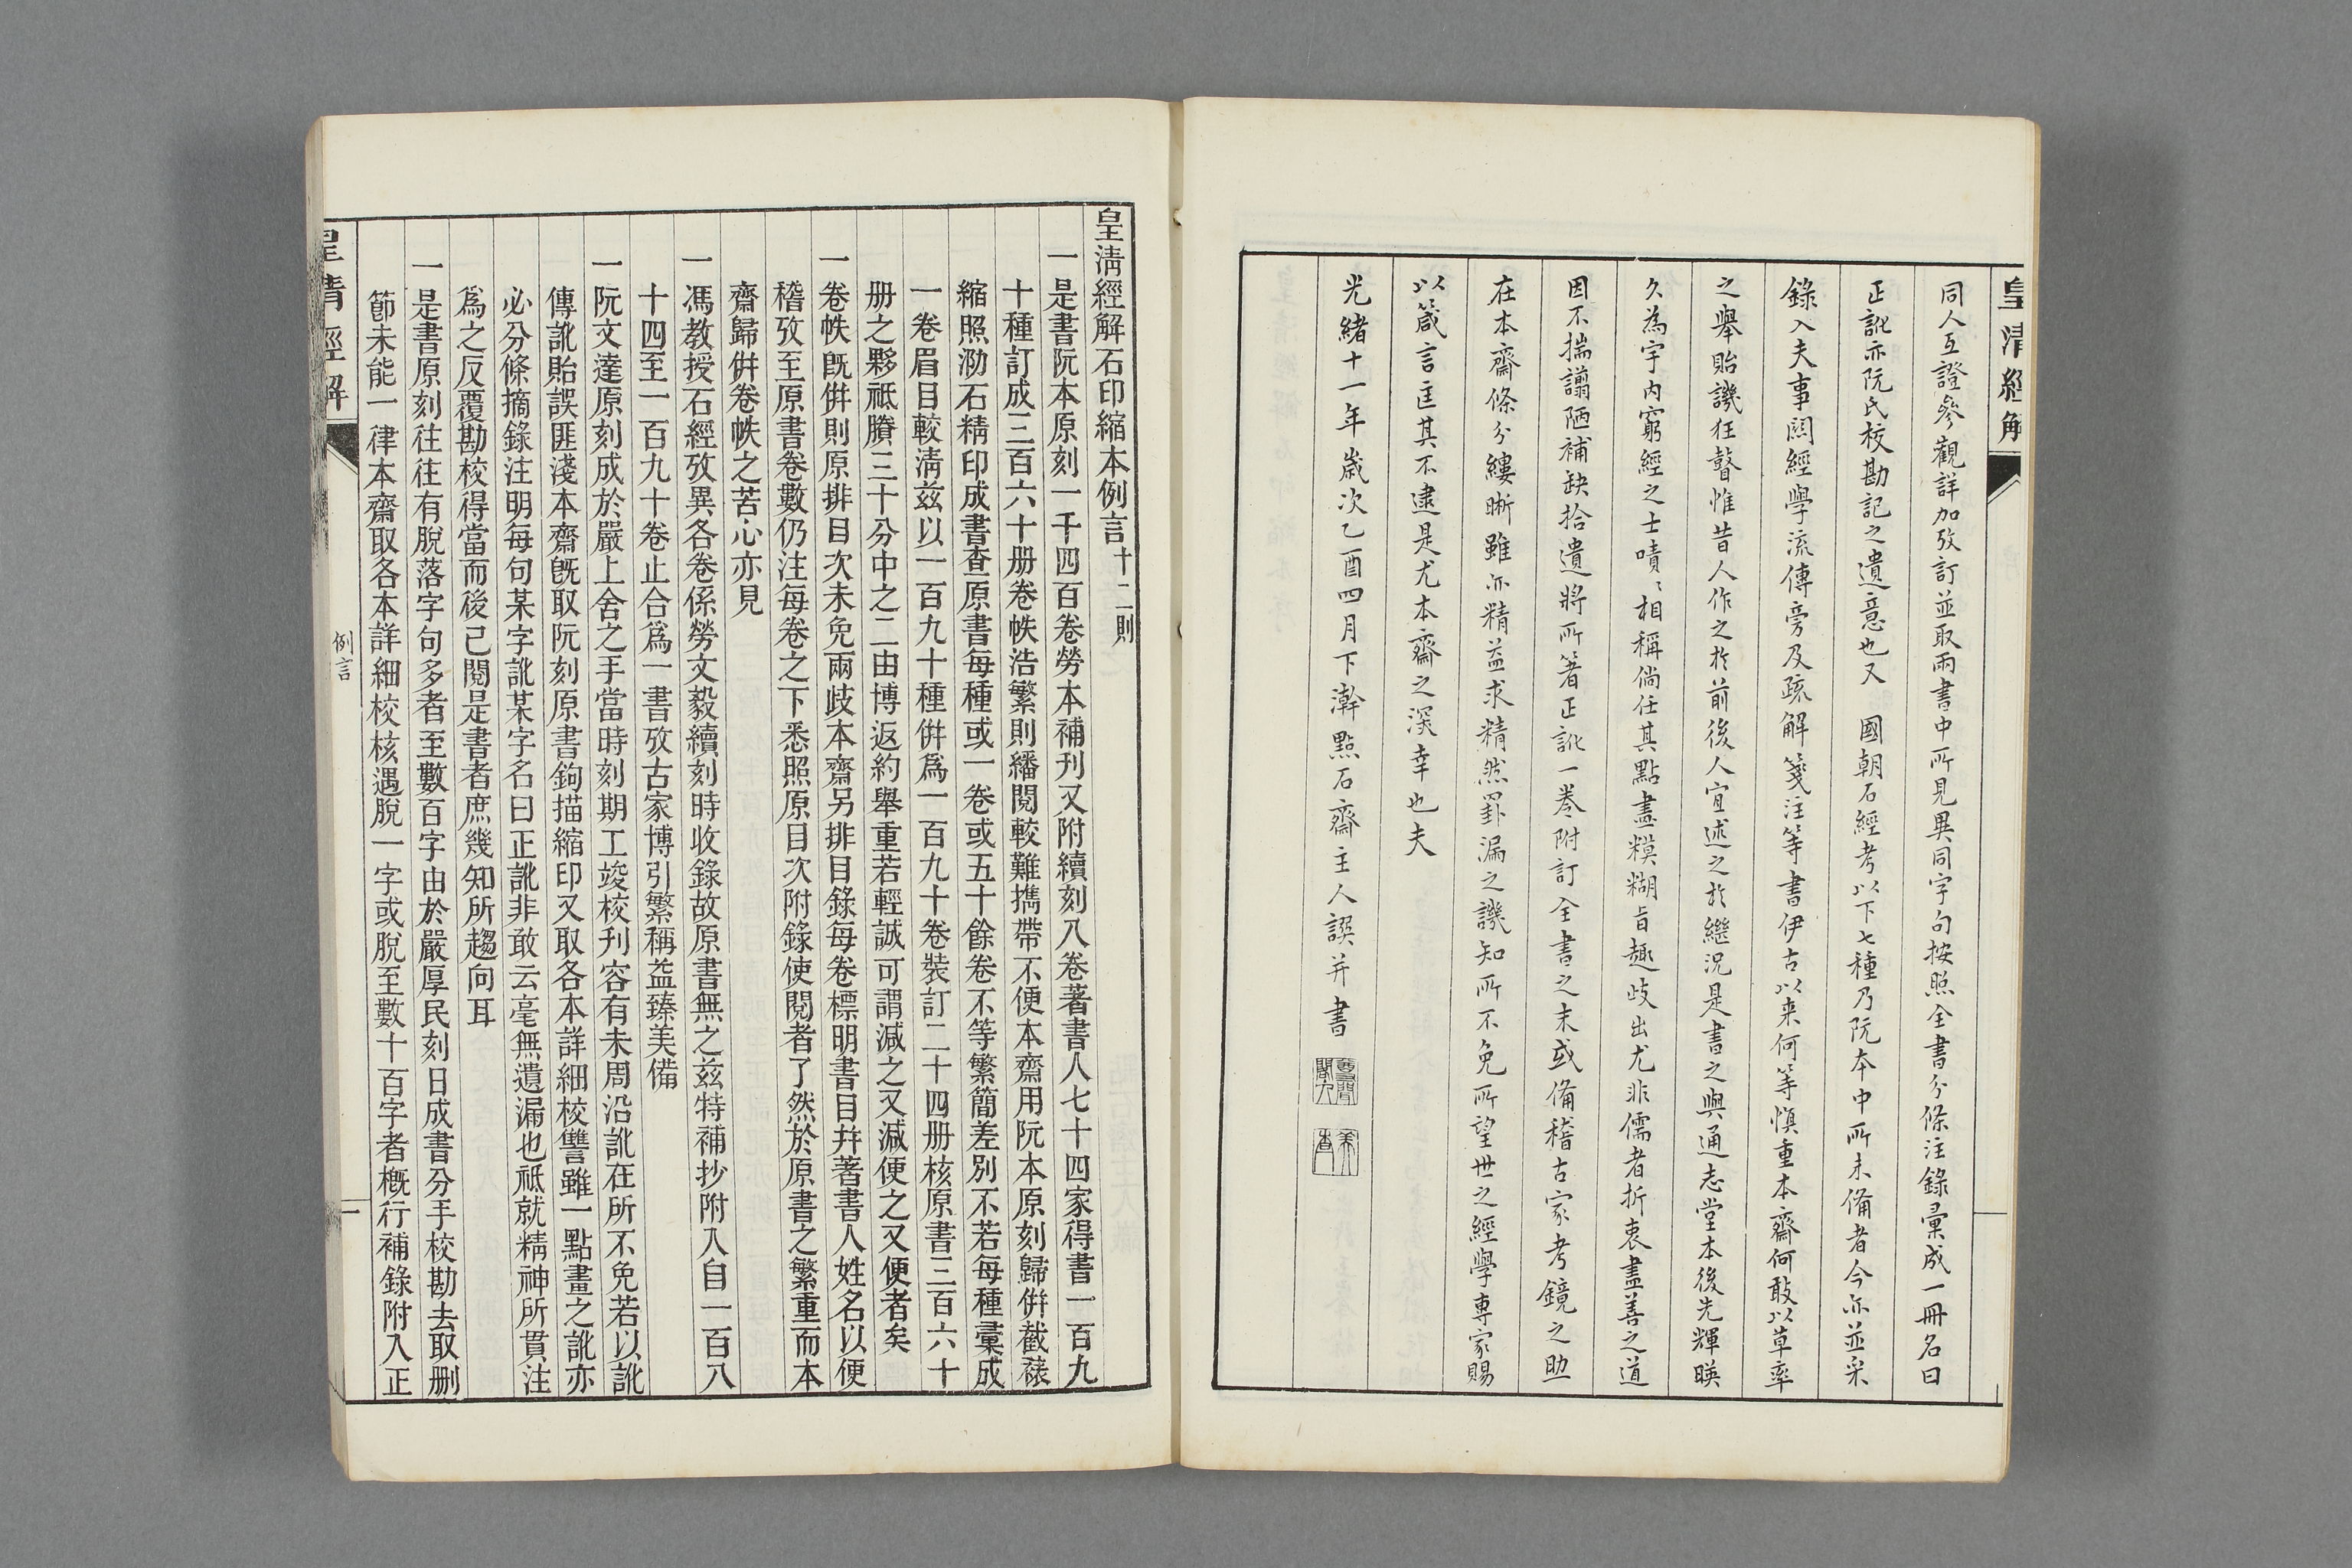 皇清經解
同人互證參觀詳加攷訂並取兩書中所見異同字句按照全書分條注錄彙成一冊名曰
正訛亦阮氏校勘記之遺意也又　國朝石經考以下七種乃阮本中所未備者今亦並采
錄入夫事關經學流傳旁及疏解箋注等書伊古以来何等慎重本齋何敢以草率
之舉貽譏狂瞽惟昔人作之於前後人宜述之於繼況是書之與通志堂本後先輝暎
久為宇內窮經之士嘖〻相稱倘任其點畫糢糊旨趣歧出尤非儒者折衷盡善之道
因不揣譾陋補缺拾遺將所箸正訛一卷附訂全書之末或備稽古家考鏡之助
在本齋條分縷晰雖亦精益求精然罣漏之譏知所不免所望世之經學專家賜
以箴言匡其不逮是尤本齋之深幸也夫
光緒十一年歲次乙酉四月下澣點石齋主人譔并書
皇清經解石印縮本例言十二則
一是書阮本原刻一千四百卷勞本補刊又附續刻八卷著書人七十四家得書一百九
十種訂成三百六十册卷帙浩繁則繙閱較難攜帶不便本齋用阮本原刻歸併截裱
縮照泐石精印成書查原書每種或一卷或五十餘卷不等繁簡差別不若每種彙成
一卷眉目較淸茲以一百九十種併爲一百九十卷裝訂二十四册核原書三百六十
册之夥祗賸三十分中之二由博返約舉重若輕誠可謂減之又減便之又便者矣
一卷帙旣併則原排目次未免兩歧本齋另排目錄每卷標明書目幷著書人姓名以便
稽攷至原書卷數仍注每卷之下悉照原目次附錄使閱者了然於原書之繁重而本
齋歸併卷帙之苦心亦見
一馮教授石經攷異各卷係勞文毅續刻時收錄故原書無之茲特補抄附入自一百八
十四至一百九十卷止合爲一書攷古家博引繁稱益臻美備
一阮文達原刻成於嚴上舍之手當時刻期工竣校刋容有未周沿訛在所不免若以訛
傳訛貽誤匪淺本齋旣取阮刻原書鉤描縮印又取各本詳細校讐雖一點畫之訛亦
必分條摘錄注明每句某字訛某字名曰正訛非敢云毫無遺漏也祗就精神所貫注
爲之反覆勘校得當而後已閱是書者庶幾知所趨向耳
一是書原刻往往有脫落字句多者至數百字由於嚴厚民刻日成書分手校勘去取删
節未能一律本齋取各本詳細校核遇脫一字或脫至數十百字者槪行補錄附入正
皇清經解
例言
一